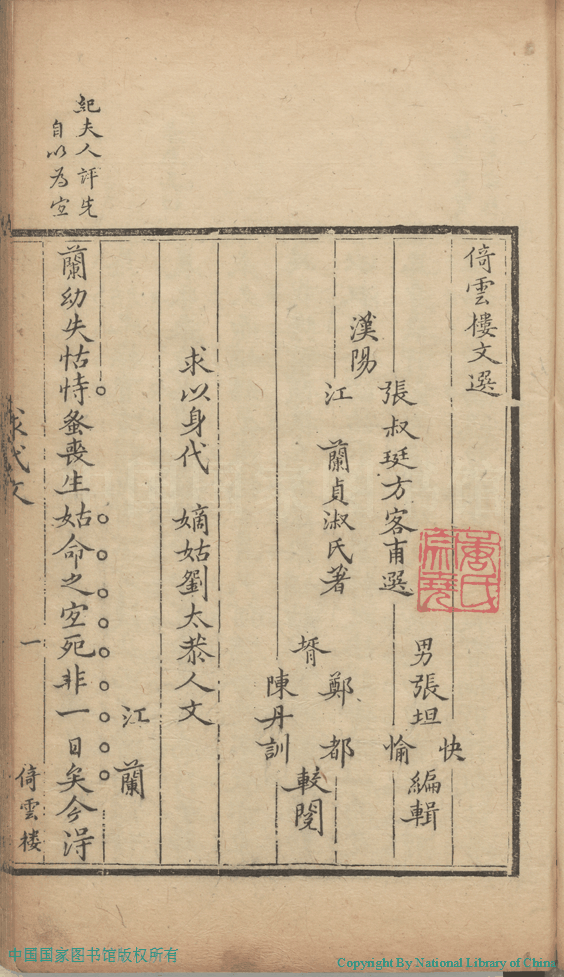 倚雲樓文選
漢陽
張叔珽方客甫選
江 蘭貞淑氏著
男張坦
快
愉
編輯
壻
鄭都
陳丹訓
較閱
求以身代 嫡姑劉太恭人文
江 蘭
蘭幼失怙恃蚤喪生姑命之宜死非一日矣今得
紀夫人評先
自以為宜
求代文
一
倚雲楼
唐氏
中国国家图书馆版权所有
Copyright By National Library of China